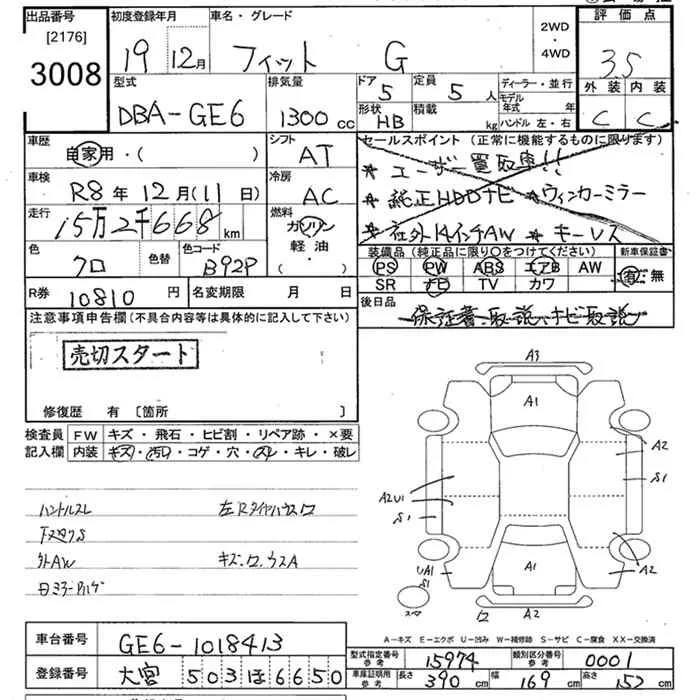 出品番号 初度登録年月 車名・グレード 2WD・4WD 評価点
[2176]
3008 19 12月 フィット G 3.5
型式 排気量 ドア 定員 ディーラー・並行 外装 内装
DBA-GE6 1300cc 5 5人 モデル年式 年 C C
形状 積載
HB kg ハンドル 左・右
車歴 シフト セールスポイント (正常に機能するものに限ります)
自家用・( ) AT ★ユーザー買取車!!
車検 冷房 ★純正HDDナビ ★ウィンカーミラー
R8年12月(11日) AC ★社外14インチAW ★キーレス
走行 燃料
15万2千668km ガソリン
軽油・( )
装備品 (純正品に限り○をつけてください) 新車保証書
色 色替 色コード PS PW ABS エアB AW 有・無
クロ B92P SR ナビ TV カワ
R券 10810円 名変期限 月 日 後日品
保証書、取説、ナビ取説
注意事項申告欄(不具合内容等は具体的に記入して下さい)
売切スタート
修復歴 有 [箇所 ]
検査員 FW キズ・飛石・ヒビ割・リペア跡・×要
記入欄 内装 キズ・汚れ・コゲ・穴・スレ・キレ・破レ
ハンドルスレ
外AW
A3
A1
A2
S1
A2U1
S1
A1
A2
UA1
S1
スペア
A2
A-キズ E-エクボ U-凹み W-補修跡 S-サビ C-腐食 XX-交換済
車台番号 GE6-1018413
型式指定番号 参考 15974 類別区分番号 参考 0001
登録番号 大宮 503 ほ 6650
車庫証明用 参考 長さ 390cm 幅 169cm 高さ 152cm